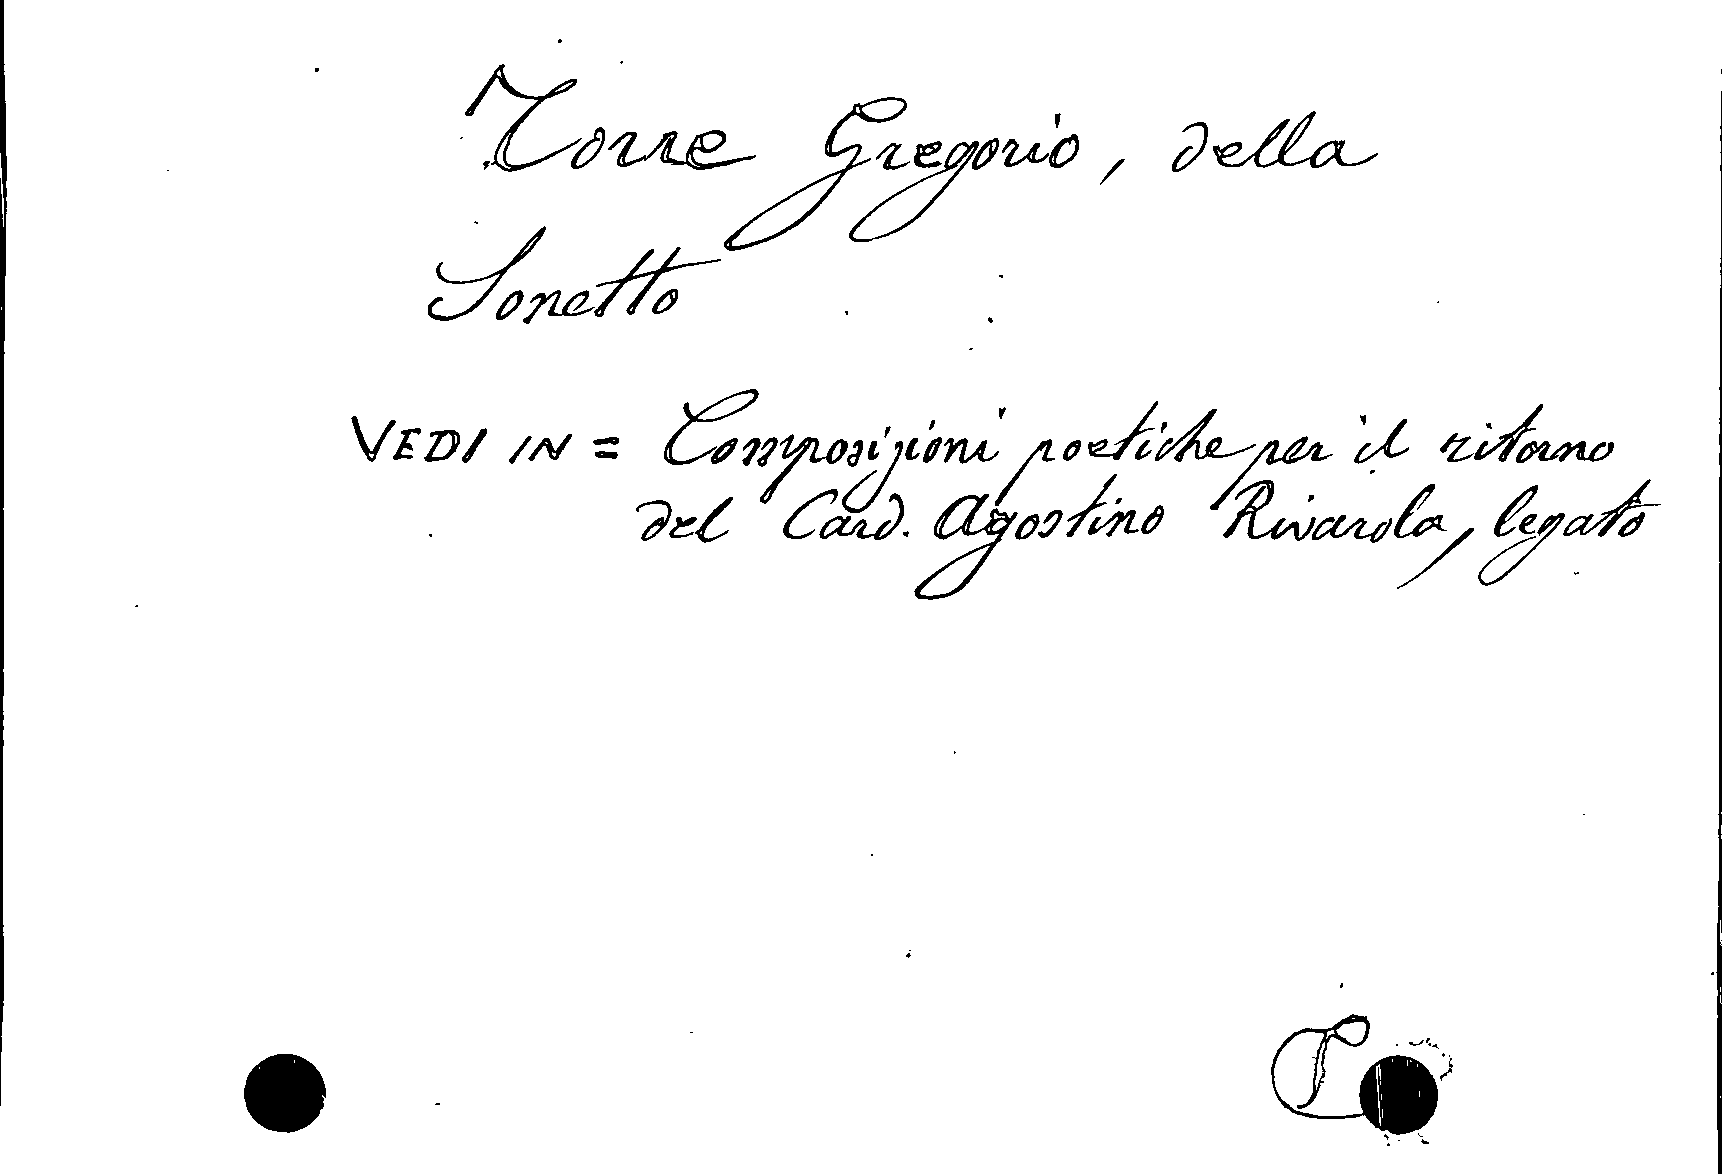 Torre Gregorio, della
Sonetto
VEDI IN = Composizioni poetiche per il ritorno
del Card. Agostino Rivarola, legato